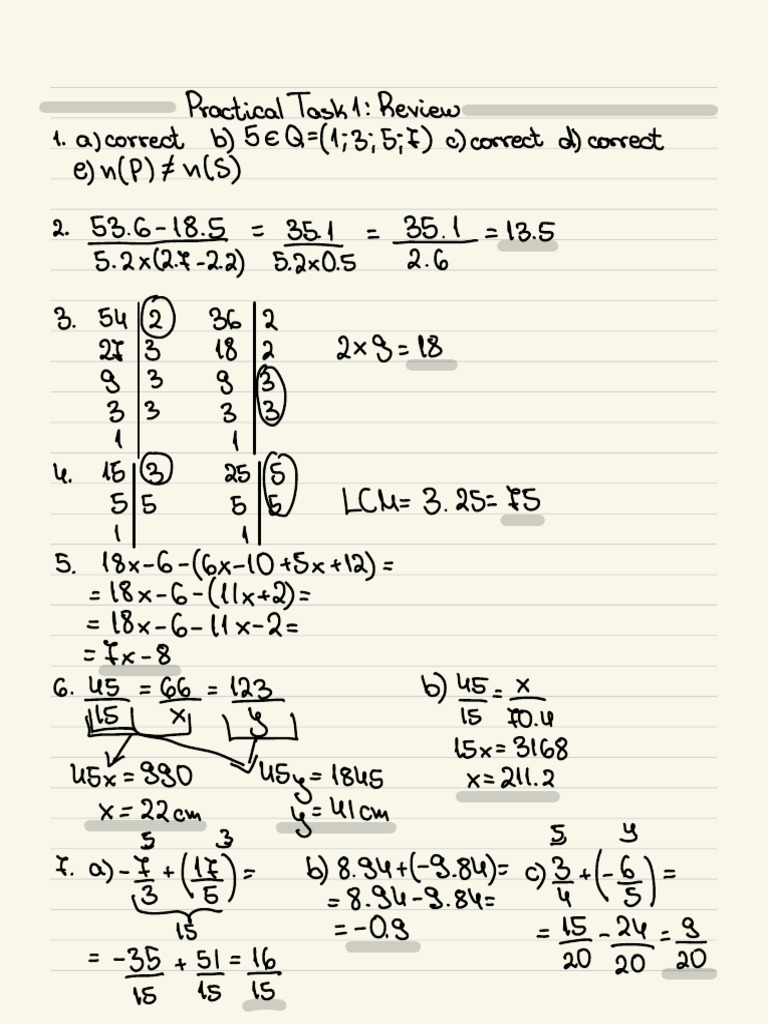 Practical Task 1: Review
1. a) correct b) 5 ∈ Q = (1; 3; 5; 7) c) correct d) correct
e) n(P) ≠ n(S)
2. 53.6 - 18.5 / 5.2 x (2.7 - 2.2) = 35.1 / 5.2 x 0.5 = 35.1 / 2.6 = 13.5
3. 54 | 2 36 | 2
27 | 3 18 | 2 2 x 9 = 18
9 | 3 9 | 3
3 | 3 3 | 3
1 | 1 |
4. 15 | 3 25 | 5
5 | 5 5 | 5 LCM = 3 . 25 = 75
1 | 1 |
5. 18x - 6 - (6x - 10 + 5x + 12) =
= 18x - 6 - (11x + 2) =
= 18x - 6 - 11x - 2 =
= 7x - 8
6. 45/15 = 66/x = 123/y b) 45/15 = x/70.4
15x = 3168
45x = 990 45y = 1845 x = 211.2
x = 22 cm y = 41 cm
5 3 5 4
7. a) -7/3 + (17/5) = b) 8.94 + (-9.84) = c) 3/4 + (-6/5) =
15 = 8.94 - 9.84 =
= -35/15 + 51/15 = 16/15 = -0.9 = 15/20 - 24/20 = 9/20